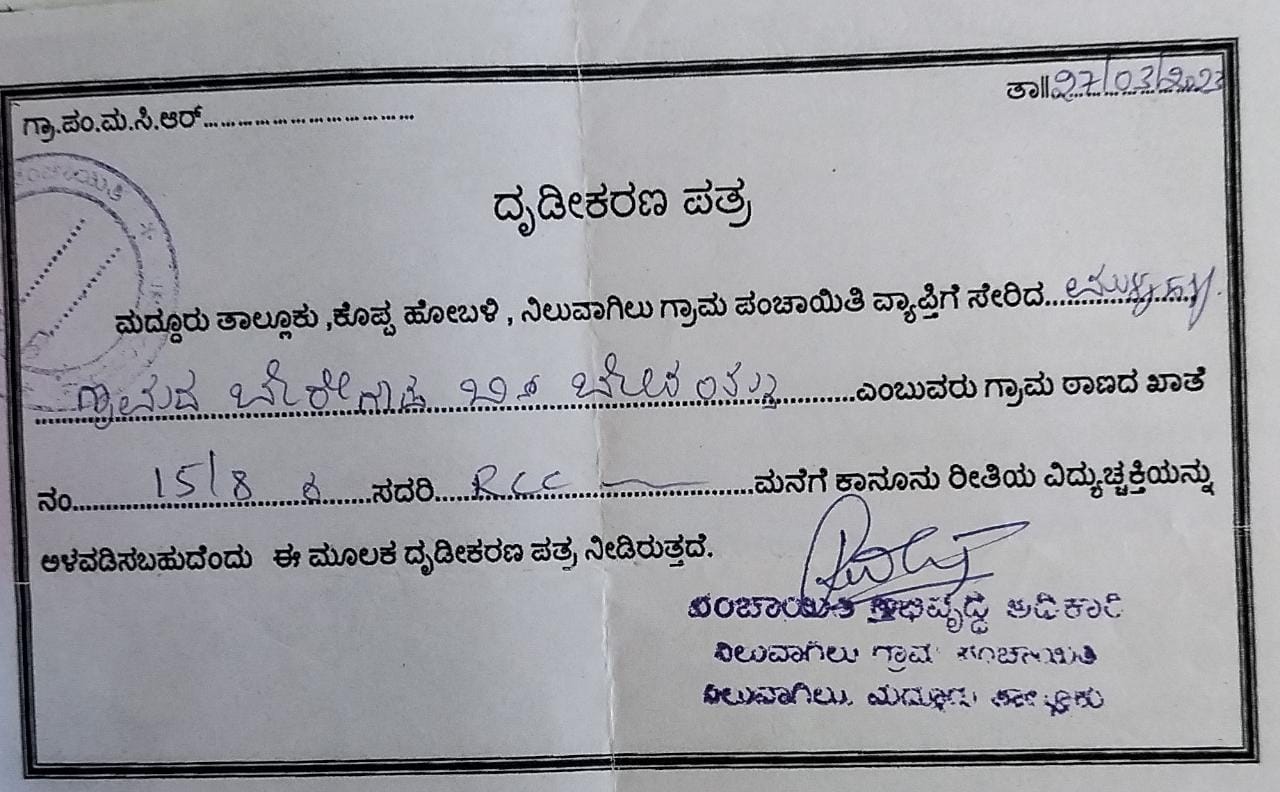 ಗ್ರಾ.ಪಂ.ಮ.ಸಿ.ಆರ್..............................
ತಾ॥27/03/2023
ದೃಡೀಕರಣ ಪತ್ರ
ಮದ್ದೂರು ತಾಲ್ಲೂಕು ,ಕೊಪ್ಪ ಹೋಬಳಿ , ನಿಲುವಾಗಿಲು ಗ್ರಾಮ ಪಂಚಾಯಿತಿ ವ್ಯಾಪ್ತಿಗೆ ಸೇರಿದ
ಗ್ರಾಮದ ಬೋರೇಗೌಡ ಬಿನ್ ..........ಎಂಬುವರು ಗ್ರಾಮ ಠಾಣದ ಖಾತೆ
ನಂ....15/8....ಸದರಿ....RCC....ಮನೆಗೆ ಕಾನೂನು ರೀತಿಯ ವಿದ್ಯುಚ್ಚಕ್ತಿಯನ್ನು
ಅಳವಡಿಸಬಹುದೆಂದು ಈ ಮೂಲಕ ದೃಡೀಕರಣ ಪತ್ರ ನೀಡಿರುತ್ತದೆ.
ಪಂಚಾಯಿತಿ ಅಭಿವೃದ್ಧಿ ಅಧಿಕಾರಿ
ನಿಲುವಾಗಿಲು ಗ್ರಾಮ ಪಂಚಾಯಿತಿ
ನಿಲುವಾಗಿಲು. ಮದ್ದೂರು ತಾಲ್ಲೂಕು